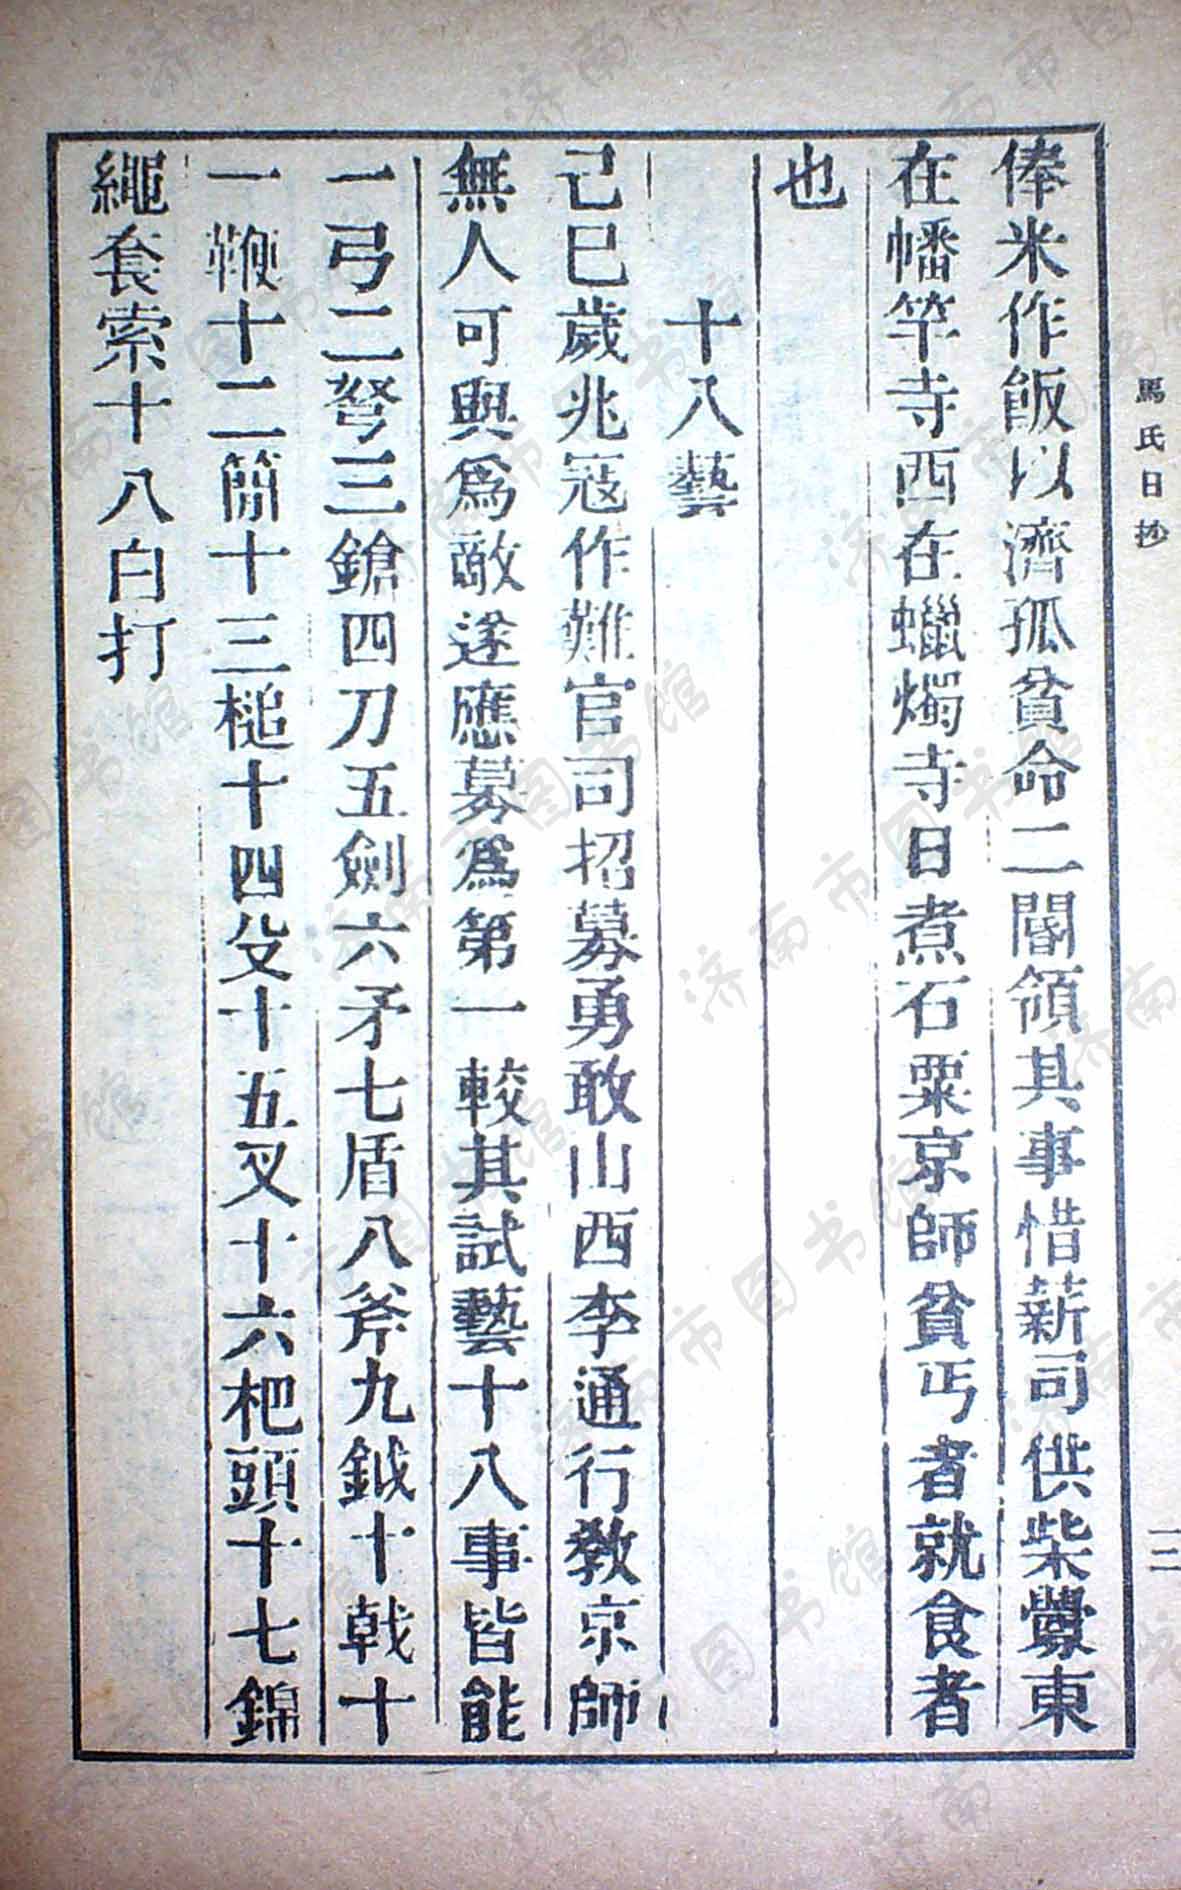 馬氏日抄
俸米作飯以濟孤貧命二閽領其事惜薪司供柴爨東
在幡竿寺西在蠟燭寺日煮石粟京師貧丐者就食者
也
十八藝
己巳歲兆寇作難官司招募勇敢山西李通行敎京師
無人可與爲敵遂應募爲第一較其試藝十八事皆能
一弓二弩三鎗四刀五劍六矛七盾八斧九鉞十戟十
一鞭十二簡十三槌十四殳十五叉十六杷頭十七錦
繩套索十八白打
济南市图书馆